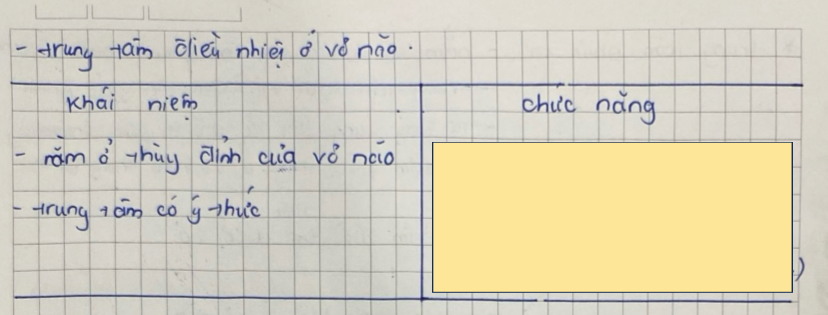 - trung tâm điều nhiệt ở vỏ não.
Khái niệm
chức năng
- nằm ở thùy đỉnh của vỏ não
- trung tâm có ý thức
)